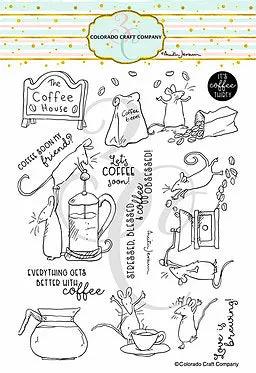 COLORADO CRAFT COMPANY
Anita Jeram
The
Coffee
House
Coffee
beans
IT'S
coffee
THIRTY
COFFEE SOON MY
friend?
Let's
COFFEE
soon!
STRESSED, BLESSED
& coffee
OBSESSED!
Anita Jeram
EVERYTHING GETS
BETTER WITH
coffee
Love is
brewing!
©Colorado Craft Company